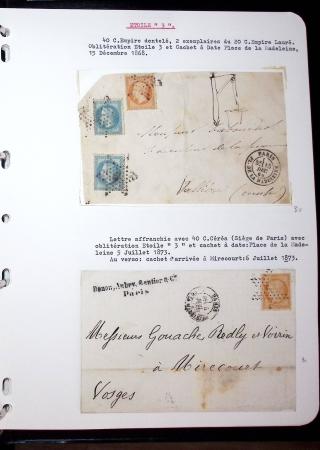 ETOILE " 3 ".
40 C.Empire dentelé, 2 exemplaires du 20 C.Empire Lauré.
Oblitération Etoile 3 et Cachet à Date Place de la Madeleine,
15 Décembre 1868.
Monsieur
PARIS
15
DEC
Lettre affranchie avec 40 C.Cérés (Siège de Paris) avec
oblitération Etoile " 3 " et cachet à date:Place de la Made-
leine 5 Juillet 1873.
Au verso: cachet d'arrivée à Mirecourt:6 Juillet 1873.
Paris
Messieurs Gouache, Redly et Voirin
à Mirecourt
Vosges